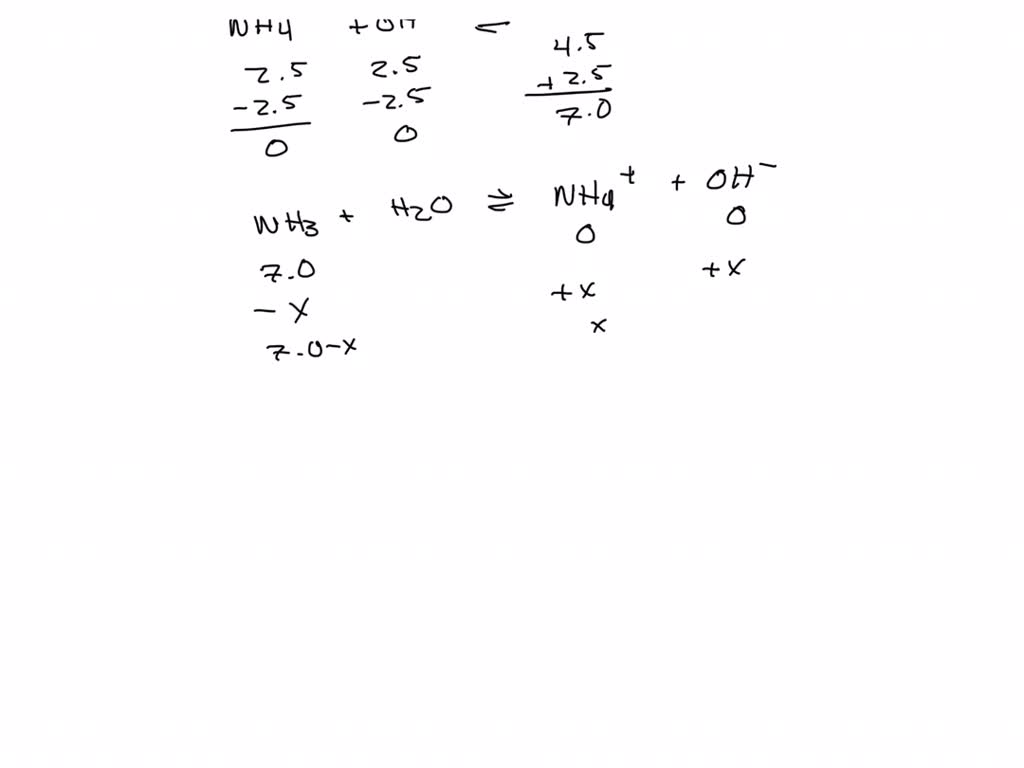 NH4 + OH
2.5 2.5 4.5
-2.5 -2.5 +2.5
0 0 7.0
NH3 + H2O ⇌ NH4+ + OH-
7.0 0 0
-X +X +X
7.0-X X